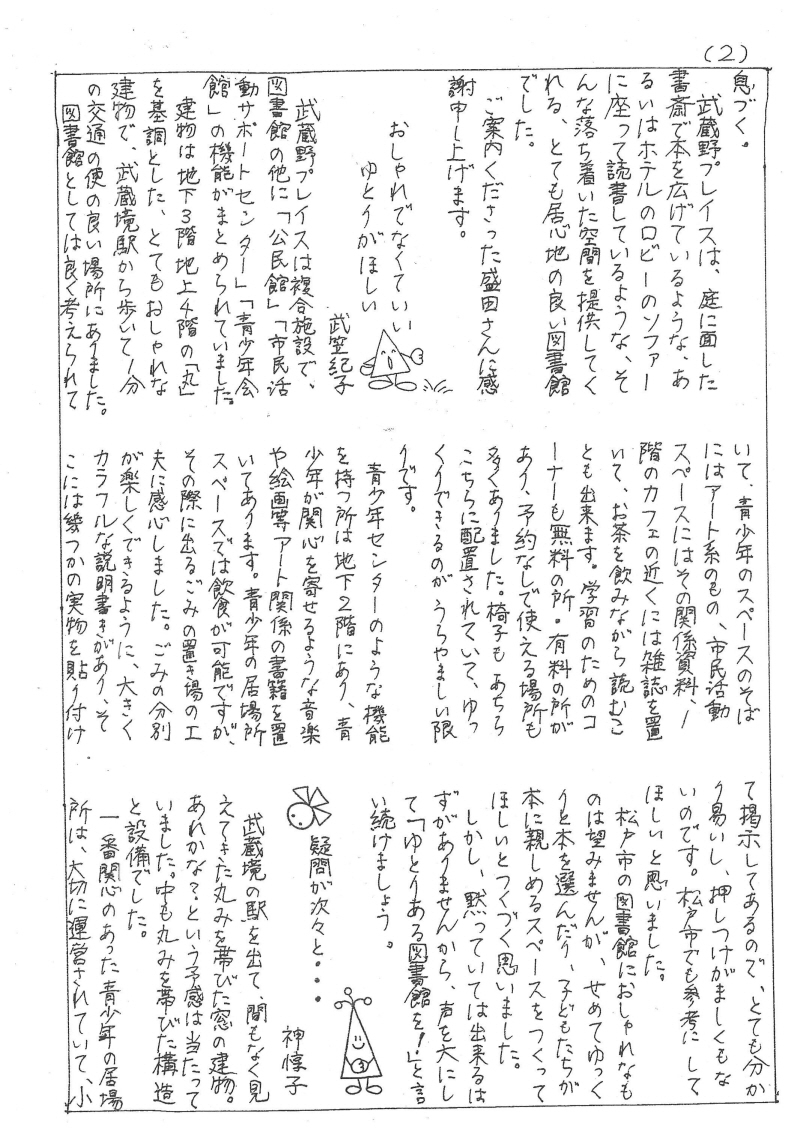 (2)
息づく。
武蔵野プレイスは、庭に面した
書斎で本を広げているような、あ
るいはホテルのロビーのソファー
に座って読書しているような、そ
んな落ち着いた空間を提供してく
れる、とても居心地の良い図書館
でした。
ご案内くださった盛田さんに感
謝申し上げます。
おしゃれでなくていい
ゆとりがほしい
武笠紀子
武蔵野プレイスは複合施設で、
図書館の他に「公民館」「市民活
動サポートセンター」「青少年会
館」の機能がまとめられていました。
建物は地下3階地上4階の「丸」
を基調とした、とてもおしゃれな
建物で、武蔵境駅から歩いて1分
の交通の便の良い場所にありました。
図書館としては良く考えられて
いて、青少年のスペースのそば
にはアート系のもの、市民活動
スペースにはその関係資料、1
階のカフェの近くには雑誌を置
いて、お茶を飲みながら読むこ
とも出来ます。学習のためのコ
ーナーも無料の所・有料の所が
あり、予約なしで使える場所も
多くありました。椅子もあちら
こちらに配置されていて、ゆっ
くりできるのがうらやましい限
りです。
青少年センターのような機能
を持つ所は地下2階にあり、青
少年が関心を寄せるような音楽
や絵画等アート関係の書籍を置
いてあります。青少年の居場所
スペースでは飲食が可能ですが、
その際に出るごみの置き場の工
夫に感心しました。ごみの分別
が楽しくできるように、大きく
カラフルな説明書きがあり、そ
こには幾つかの実物を貼り付け
て掲示してあるので、とても分か
り易いし、押しつけがましくもな
いのです。松戸市でも参考にして
ほしいと思いました。
松戸市の図書館におしゃれなも
のは望みませんが、せめてゆっく
りと本を選んだり、子どもたちが
本に親しめるスペースをつくって
ほしいとつくづく思いました。
しかし、黙っていては出来るは
ずがありませんから、声を大にし
て「ゆとりある図書館を!」と言
い続けましょう。
疑問が次々と・・・
神惇子
武蔵境の駅を出て、間もなく見
えてきた丸みを帯びた窓の建物。
あれかな?という予感は当たって
いました。中も丸みを帯びた構造
と設備でした。
一番関心のあった青少年の居場
所は、大切に運営されていて、小